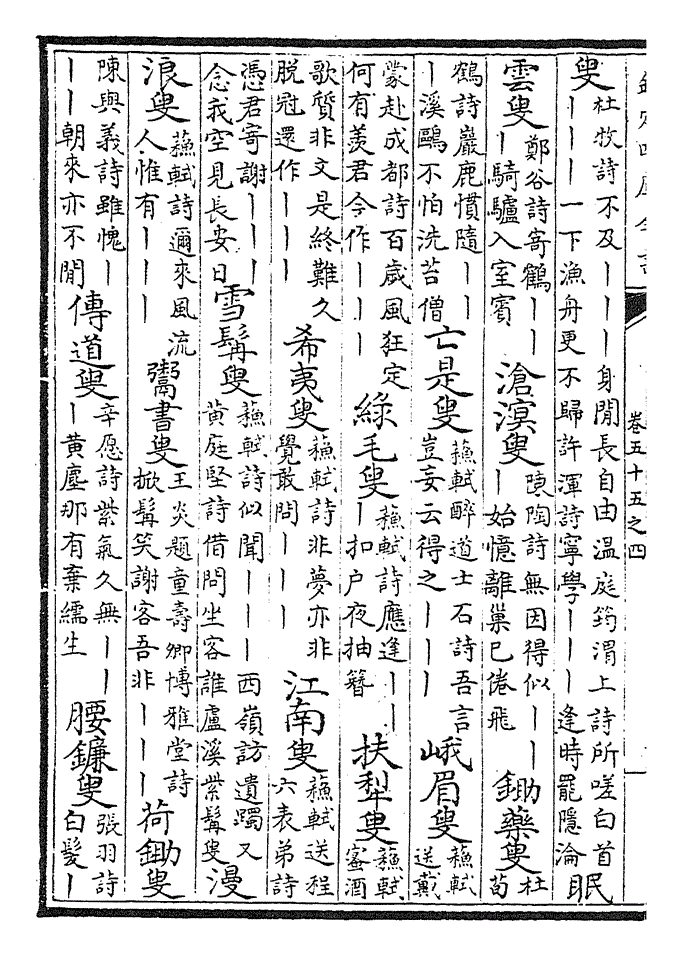 卷五十五之四
叟
杜牧詩不及｜｜｜身閒長自由温庭筠渭上詩所嗟白首
｜｜｜一下漁舟更不歸許渾詩寧學｜｜｜逢時罷隱淪
眠
雲叟
鄭谷詩寄鶴｜｜
｜騎驢入室賓
滄溟叟
陳陶詩無因得似｜｜
｜始憶離巢已倦飛
鋤藥叟
杜
荀
鶴詩巖鹿慣隨｜｜
｜溪鷗不怕洗苔僧
亡是叟
蘇軾醉道士石詩吾言
豈妄云得之｜｜｜
峨眉叟
蘇軾
送戴
蒙赴成都詩百歲風狂定
何有羨君今作｜｜｜
綠毛叟
蘇軾詩應逢｜｜
｜扣户夜抽簪
扶犁叟
蘇軾
蜜酒
歌質非文是終難久
脱冠還作｜｜｜
希夷叟
蘇軾詩非夢亦非
覺敢問｜｜｜
江南叟
蘇軾送程
六表弟詩
憑君寄謝｜｜｜
念我空見長安日
雪髯叟
蘇軾詩似聞｜｜｜西嶺訪遺躅又
黄庭堅詩借問坐客誰盧溪紫髯叟
漫
浪叟
蘇軾詩邇來風流
人惟有｜｜｜
鬻書叟
王炎題童壽卿博雅堂詩
掀髯笑謝客吾非｜｜｜
荷鋤叟
陳與義詩雖愧｜
｜｜朝來亦不閒
傳道叟
辛愿詩紫氣久無｜｜
｜黄塵那有棄繻生
腰鐮叟
張羽詩
白髮｜